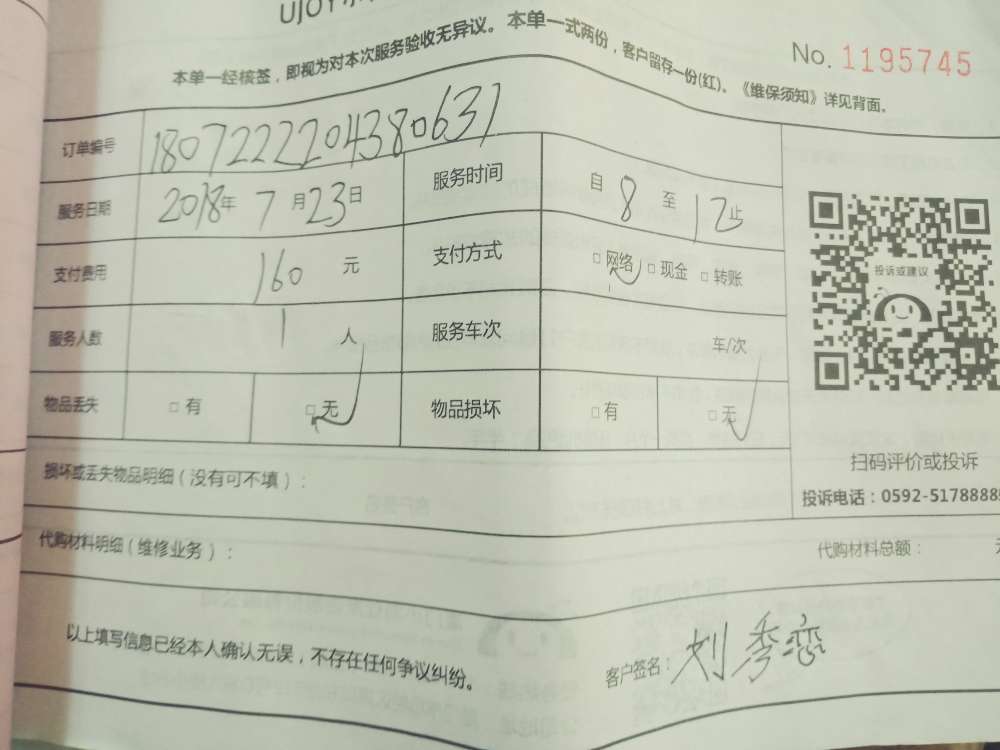 UJOY
本单一经核签，即视为对本次服务验收无异议。本单一式两份，客户留存一份(红)。《维保须知》详见背面。
No. 1195745
订单编号 1807222204380631
服务日期 2018年 7月23日 服务时间 自 8 至 12止
支付费用 160 元 支付方式 □网络 □现金 □转账
服务人数 1 人 服务车次 车/次
物品丢失 □有 □无 物品损坏 □有 □无
投诉或建议
扫码评价或投诉
投诉电话：0592-5178888
损坏或丢失物品明细（没有可不填）：
代购材料明细（维修业务）： 代购材料总额：
以上填写信息已经本人确认无误，不存在任何争议纠纷。
客户签名：刘秀恋